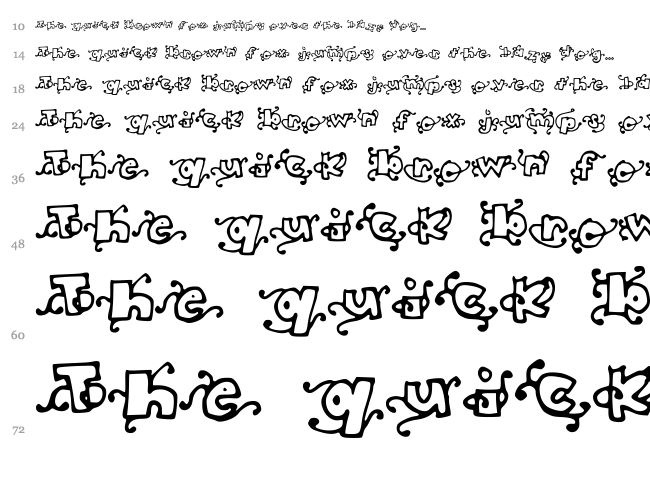 10 The quick brown fox jumps over the lazy dog...
14 The quick brown fox jumps over the lazy dog...
18 The quick brown fox jumps over the la
24 The quick brown fox jumps ov
36 The quick brown fo
48 The quick brow
60 The quick b
72 The quick